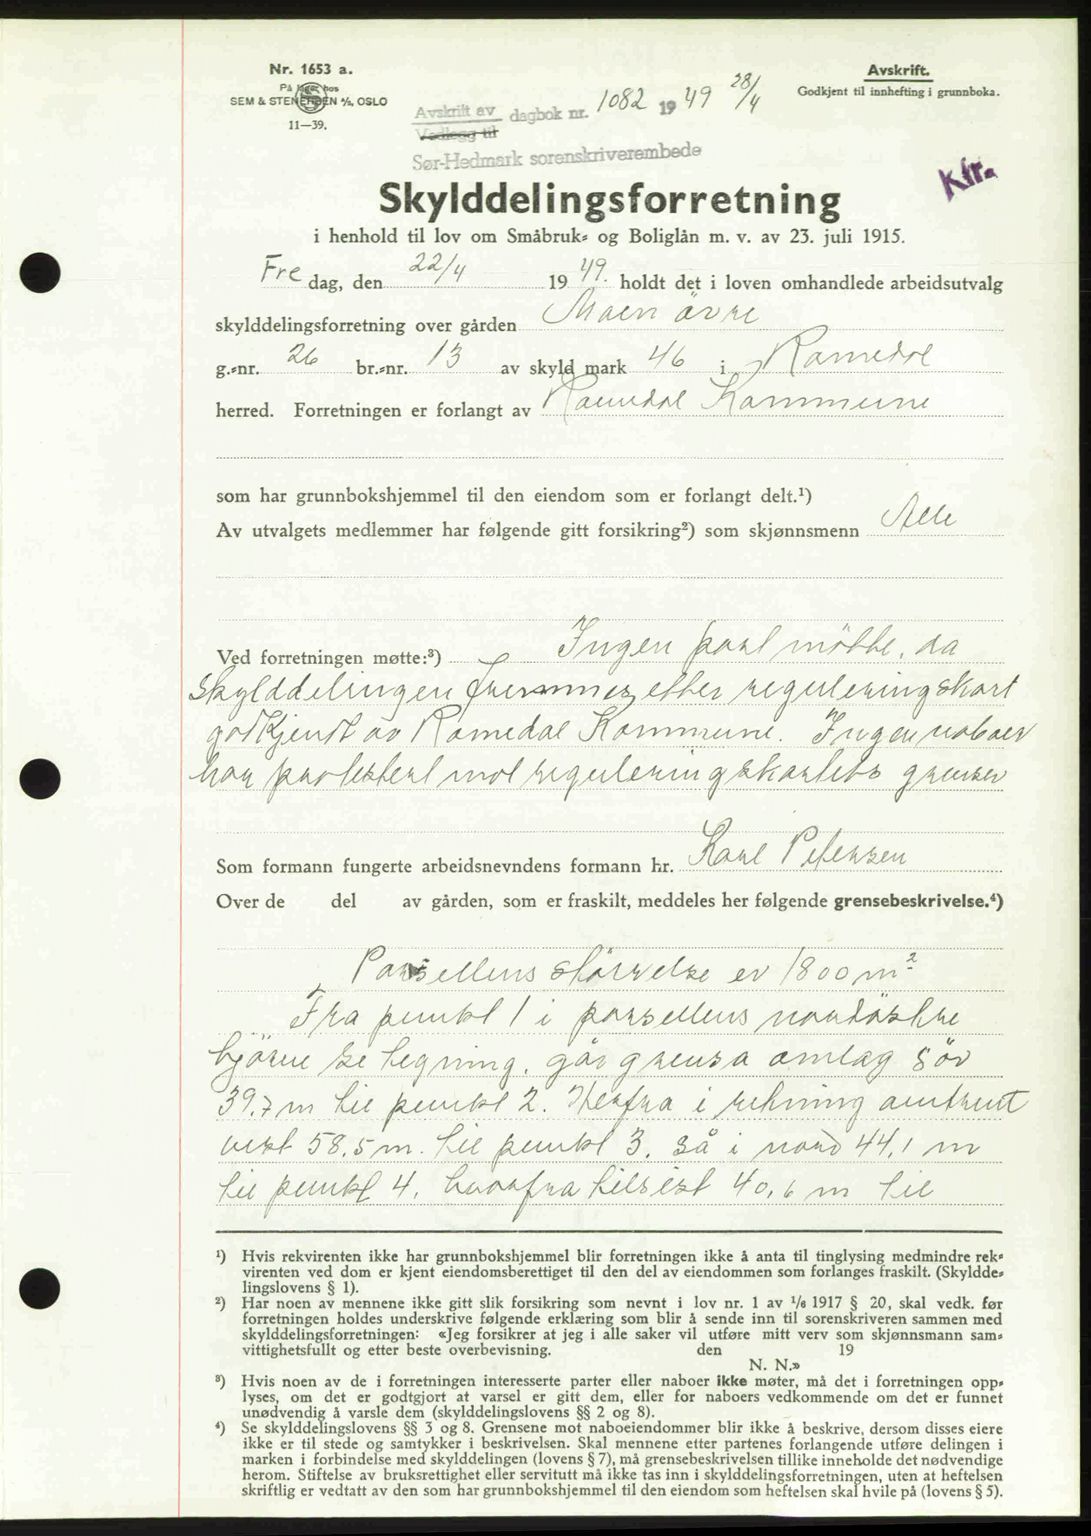 Nr. 1653 a.
På lager hos
SEM & STENERSEN A/S, OSLO
11—39.
Avskrift av
Vedlegg til
dagbok nr. 1082 1949 28/4
Sør-Hedmark sorenskriverembede
Avskrift.
Godkjent til innhefting i grunnboka.
Kfr.
Skylddelingsforretning
i henhold til lov om Småbruk- og Boliglån m. v. av 23. juli 1915.
Fredag, den 22/4 1949. holdt det i loven omhandlede arbeidsutvalg
skylddelingsforretning over gården Moen övre
g.-nr. 26 br.-nr. 13 av skyld mark 46 i Romedal
herred. Forretningen er forlangt av Romedal Kommune
som har grunnbokshjemmel til den eiendom som er forlangt delt.¹)
Av utvalgets medlemmer har følgende gitt forsikring²) som skjønnsmenn Alle
Ved forretningen møtte:³) Ingen part mötte, da
skylddelingen fremmes etter reguleringskart
godkjendt av Romedal Kommune. Ingen naboer
har protestert mot reguleringskartets grenser
Som formann fungerte arbeidsnevndens formann hr. Karl Petersen
Over de del av gården, som er fraskilt, meddeles her følgende grensebeskrivelse.⁴)
Parsellens störrelse er 1800 m²
Fra punkt 1 i parsellens nordöstre
hjörne se tegning, går grensa omlag sör
39.7 m til punkt 2. Herfra i retning omtrent
vest 58,5 m. til punkt 3, så i nord 44,1 m
til punkt 4, hvorfra tilsist 40,6 m til
¹) Hvis rekvirenten ikke har grunnbokshjemmel blir forretningen ikke å anta til tinglysing medmindre rek-
virenten ved dom er kjent eiendomsberettiget til den del av eiendommen som forlanges fraskilt. (Skyldde-
lingslovens § 1).
²) Har noen av mennene ikke gitt slik forsikring som nevnt i lov nr. 1 av 1/6 1917 § 20, skal vedk. før
forretningen holdes underskrive følgende erklæring som blir å sende inn til sorenskriveren sammen med
skylddelingsforretningen: «Jeg forsikrer at jeg i alle saker vil utføre mitt verv som skjønnsmann sam-
vittighetsfullt og etter beste overbevisning. den 19
N. N.»
³) Hvis noen av de i forretningen interesserte parter eller naboer ikke møter, må det i forretningen opp-
lyses, om det er godtgjort at varsel er gitt dem, eller for naboers vedkommende om det er funnet
unødvendig å varsle dem (skylddelingslovens §§ 2 og 8).
⁴) Se skylddelingslovens §§ 3 og 8. Grensene mot naboeiendommer blir ikke å beskrive, dersom disses eiere
ikke er til stede og samtykker i beskrivelsen. Skal mennene etter partenes forlangende utføre delingen i
marken i forbindelse med skylddelingen (lovens § 7), må grensebeskrivelsen tillike inneholde det nødvendige
herom. Stiftelse av bruksrettighet eller servitutt må ikke tas inn i skylddelingsforretningen, uten at heftelsen
skriftlig er vedtatt av den som har grunnbokshjemmel til den eiendom som heftelsen skal hvile på (lovens § 5).